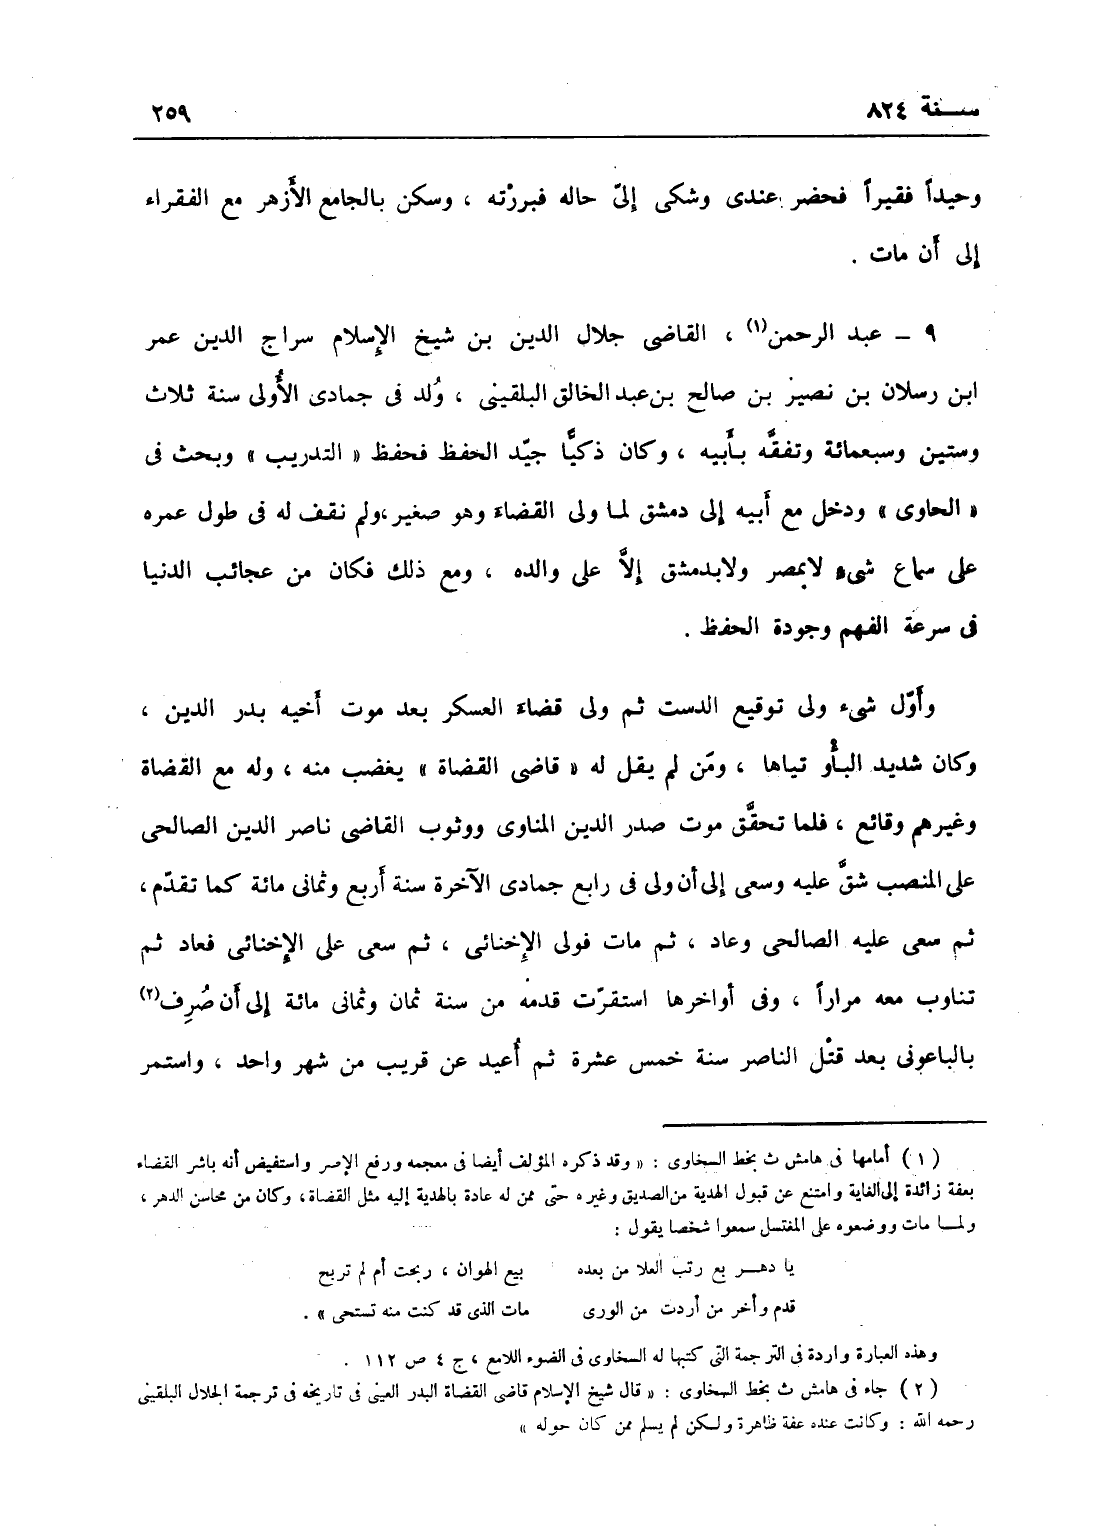 سنة ٨٢٤
٢٥٩
وحيداً فقيراً فحضر عندى وشكى إلىّ حاله فبررْته ، وسكن بالجامع الأَزهر مع الفقراء
إلى أن مات .
٩ – عبد الرحمن(١) ، القاضى جلال الدين بن شيخ الإسلام سراج الدين عمر
ابن رسلان بن نصير بن صالح بن عبد الخالق البلقينى ، وُلد فى جمادى الأُولى سنة ثلاث
وستين وسبعمائة وتفقَّه بأَبيه ، وكان ذكيًّا جيّد الحفظ فحفظ « التدريب » وبحث فى
« الحاوى » ودخل مع أَبيه إلى دمشق لما ولى القضاء وهو صغير ، ولم نقف له فى طول عمره
على سماع شىء لابمصر ولابدمشق إلاَّ على والده ، ومع ذلك فكان من عجائب الدنيا
فى سرعة الفهم وجودة الحفظ .
وأَوّل شىء ولى توقيع الدست ثم ولى قضاء العسكر بعد موت أَخيه بدر الدين ،
وكان شديد البأْو تياها ، ومَن لم يقل له « قاضى القضاة » يغضب منه ، وله مع القضاة
وغيرهم وقائع ، فلما تحقَّق موت صدر الدين المناوى ووثوب القاضى ناصر الدين الصالحى
على المنصب شقَّ عليه وسعى إلى أن ولى فى رابع جمادى الآخرة سنة أَربع وثمانى مائة كما تقدّم ،
ثم سعى عليه الصالحى وعاد ، ثم مات فولى الإخنائى ، ثم سعى على الإخنائى فعاد ثم
تناوب معه مراراً ، وفى أواخرها استقرّت قدمه من سنة ثمان وثمانى مائة إلى أَن صُرِف(٢)
بالباعونى بعد قتْل الناصر سنة خمس عشرة ثم أُعيد عن قريب من شهر واحد ، واستمر
(١) أمامها فى هامش ث بخط السخاوى : « وقد ذكره المؤلف أيضا فى معجمه ورفع الإصر واستفيض أنه باشر القضاء
بعفة زائدة إلى الغاية وامتنع عن قبول الهدية من الصديق وغيره حتى ممن له عادة بالهدية إليه مثل القضاة ، وكان من محاسن الدهر ،
ولما مات ووضعوه على المغتسل سمعوا شخصا يقول :
يا دهر بع رتب العلا من بعده بيع الهوان ، ربحت أم لم تربح
قدم وأخر من أردت من الورى مات الذى قد كنت منه تستحى » .
وهذه العبارة واردة فى الترجمة التى كتبها له السخاوى فى الضوء اللامع ، ج ٤ ص ١١٢ .
(٢) جاء فى هامش ث بخط السخاوى : « قال شيخ الإسلام قاضى القضاة البدر العينى فى تاريخه فى ترجمة الجلال البلقينى
رحمه الله : وكانت عنده عفة ظاهرة ولكن لم يسلم ممن كان حوله »